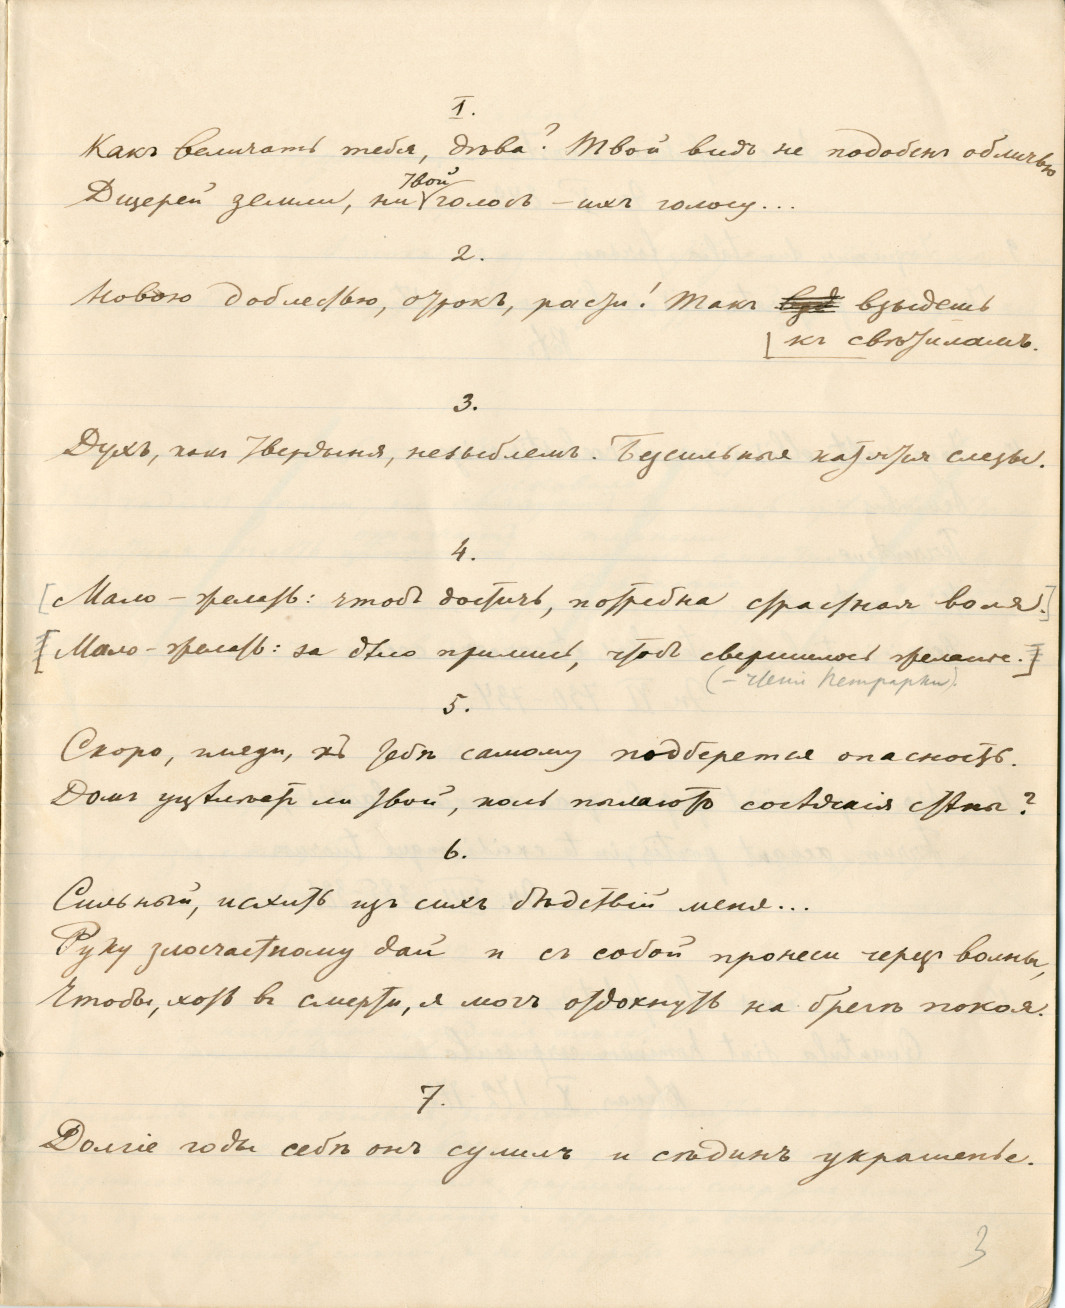 I.
Какъ величать тебя, дѣва? Твой видъ не подобенъ обличью
Дщерей земли, ни твой голосъ – ихъ голосу...
2.
Новою доблестью, отрокъ, расти! Такъ взыдешь
къ свѣтиламъ.
3.
Духъ, какъ твердыня, незыблемъ. Безсильныя катятся слезы.
4.
[Мало – желать: чтобъ достичь, потребна страстная воля.]
[Мало – желать: за дѣло примись, чтобъ свершилось желанье.]
(– Петрарки).
5.
Скоро, гляди, къ тебѣ самому подберется опасность.
Домъ уцѣлѣетъ ли твой, коль пылаютъ сосѣдскія стѣны?
6.
Сильный, исхить изъ сихъ бѣдствій меня...
Руку злосчастному дай и съ собой пронеси черезъ волны,
Чтобы, хоть въ смерти, я могъ отдохнуть на брегѣ покоя.
7.
Долгіе годы себѣ онъ сулилъ и сѣдинъ украшенье.
3